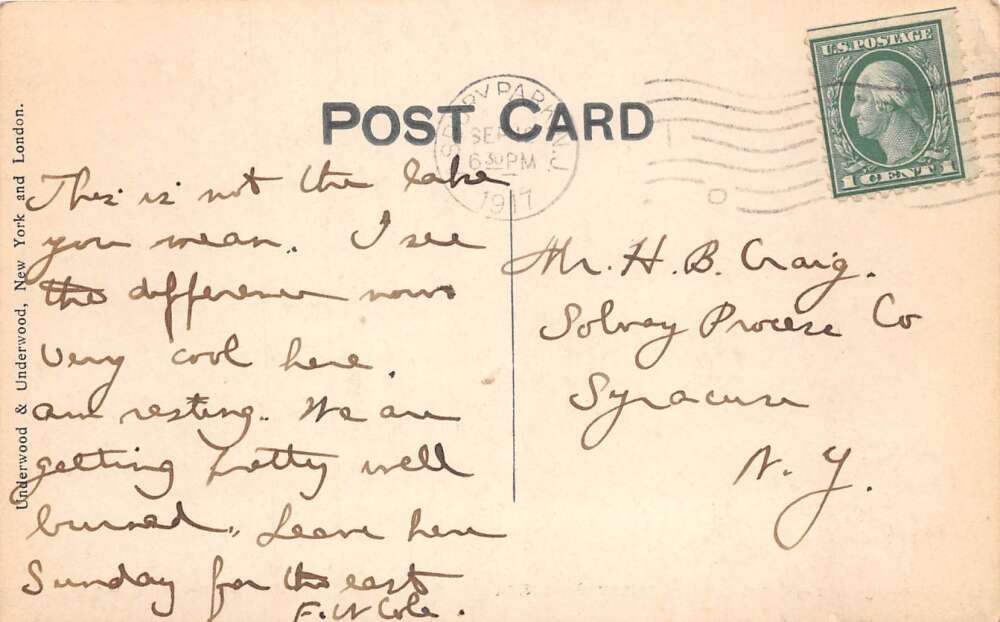 POST CARD
U.S. POSTAGE
1 CENT 1
SBURY PARK N.J.
SEP
6 30 PM
1917
Underwood & Underwood, New York and London.
This is not the lake
you mean. I see
the difference now
very cool here.
am resting. We are
getting pretty well
burned. Leave here
Sunday for the east
F. W Cole.
Mr. H. B. Craig.
Solvay Process Co
Syracuse
N. Y.